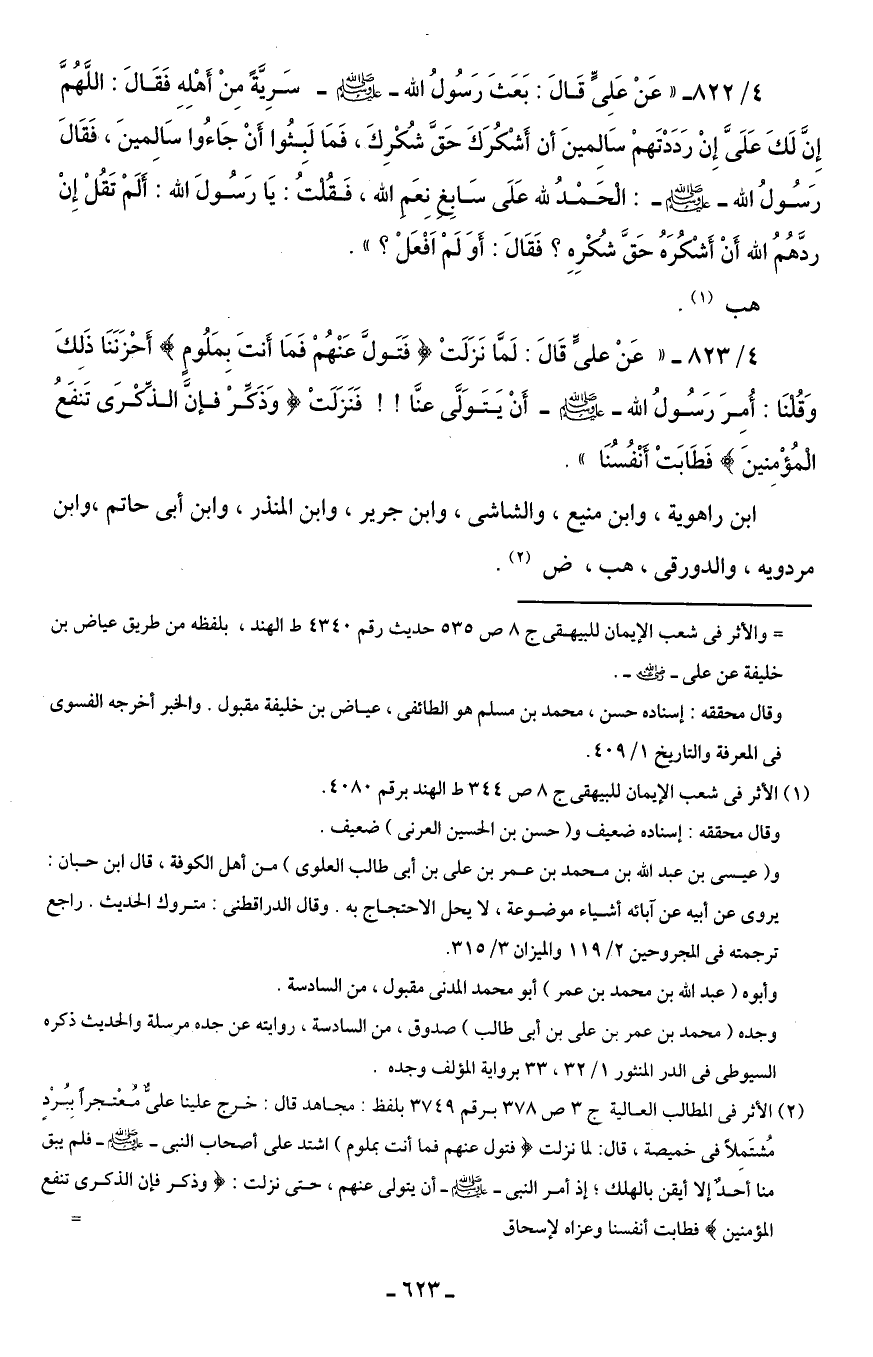 ٤/ ٨٢٢ـ « عَنْ عَلِىٍّ قَـالَ : بَعَثَ رَسُولُ الله ـ ﷺ ـ سَـرِيَّةً مِنْ أَهْلِهِ فَقَـالَ : اللَّهُمَّ
إِنَّ لَكَ عَلَىَّ إِنْ رَدَدْتَهمْ سـَالِمينَ أن أَشْكُرَكَ حَقَّ شُكْرِكَ ، فَمَا لَبِثُوا أَنْ جَاءُوا سَالِمينَ ، فَقَالَ
رَسُـولُ الله ـ ﷺ ـ : الْحَـمْـدُ لله عَلَى سَـابِغِ نِعَمِ الله ، فَـقُلْتُ : يَا رَسُـولَ الله : أَلَمْ تَقُلْ إِنْ
ردَّهُمُ الله أَنْ أَشْكُرَهُ حَقَّ شُكْرِهِ ؟ فَقَالَ : أَوَ لَمْ اَفْعَلْ ؟ » .
هب (١) .
٤/ ٨٢٣ ـ « عَنْ علىٍّ قَالَ : لَمَّا نَزَلَتْ ﴿ فَتَولَّ عَنْهُمْ فَمَا أَنتَ بِمَلُومٍ ﴾ أَحْزَنَنَا ذَلِكَ
وَقُلْنَا : أُمِرَ رَسُـولُ الله ـ ﷺ ـ أَنْ يَـتَـوَلَّى عنَّا ! ! فَنَزَلَتْ ﴿ وَذَكِّـرْ فـإنَّ الـذِّكْـرَى تَنفَعُ
الْمُؤْمِنينَ ﴾ فَطَابَتْ أَنْفُسُنَا » .
ابن راهوية ، وابن منيع ، والشاشى ، وابن جرير ، وابن المنذر ، وابن أبى حاتم ،وابن
مردويه ، والدورقى ، هب ، ض (٢) .
= والأثر فى شعب الإيمان للبيهـقى ج ٨ ص ٥٣٥ حديث رقم ٤٣٤٠ ط الهند ، بلفظه من طريق عياض بن
خليفة عن على ـ رضي الله عنه ـ .
وقال محققه : إسناده حسن ، محمد بن مسلم هو الطائفى ، عيـاض بن خليفة مقبول . والخبر أخرجه الفسوى
فى المعرفة والتاريخ ١/ ٤٠٩.
(١) الأثر فى شعب الإيمان للبيهقى ج ٨ ص ٣٤٤ ط الهند برقم ٤٠٨٠.
وقال محققه : إسناده ضعيف و( حسن بن الحسين العرنى ) ضعيف .
و( عيـسى بن عبد الله بن مـحمد بن عمـر بن على بن أبى طالب العلوى ) مـن أهل الكوفة ، قال ابن حبـان :
يروى عن أبيه عن آبائه أشـياء موضـوعة ، لا يحل الاحتجـاج به . وقال الدراقطنى : متـروك الحديث . راجع
ترجمته فى المجروحين ٢/ ١١٩ والميزان ٣/ ٣١٥.
وأبوه ( عبد الله بن محمد بن عمر ) أبو محمد المدنى مقبول ، من السادسة .
وجده ( محمد بن عمر بن على بن أبى طالب ) صدوق ، من السادسة ، روايته عن جده مرسلة والحديث ذكره
السيوطى فى الدر المنثور ١/ ٣٢ ، ٣٣ برواية المؤلف وجده .
(٢) الأثر فى المطالب العـالية ج ٣ ص ٣٧٨ بـرقم ٣٧٤٩ بلفظ : مجـاهد قال : خـرج علينا علىٌّ مُـعْـتـجراً بِبُـرْدٍ
مُشتَملاً فى خميصة ، قال: لما نزلت ﴿ فتول عنهم فما أنت بملوم ) اشتد على أصحاب النبى ـ ﷺ ـ فلم يبق
منا أحـدٌ إلا أيقن بالهلك ؛ إذ أمـر النبى ـ ﷺ ـ أن يتولى عنهم ، حتـى نزلت : ﴿ وذكر فإن الذكـرى تنفع
المؤمنين ﴾ فطابت أنفسنا وعزاه لإسحاق =
ـ ٦٢٣ ـ